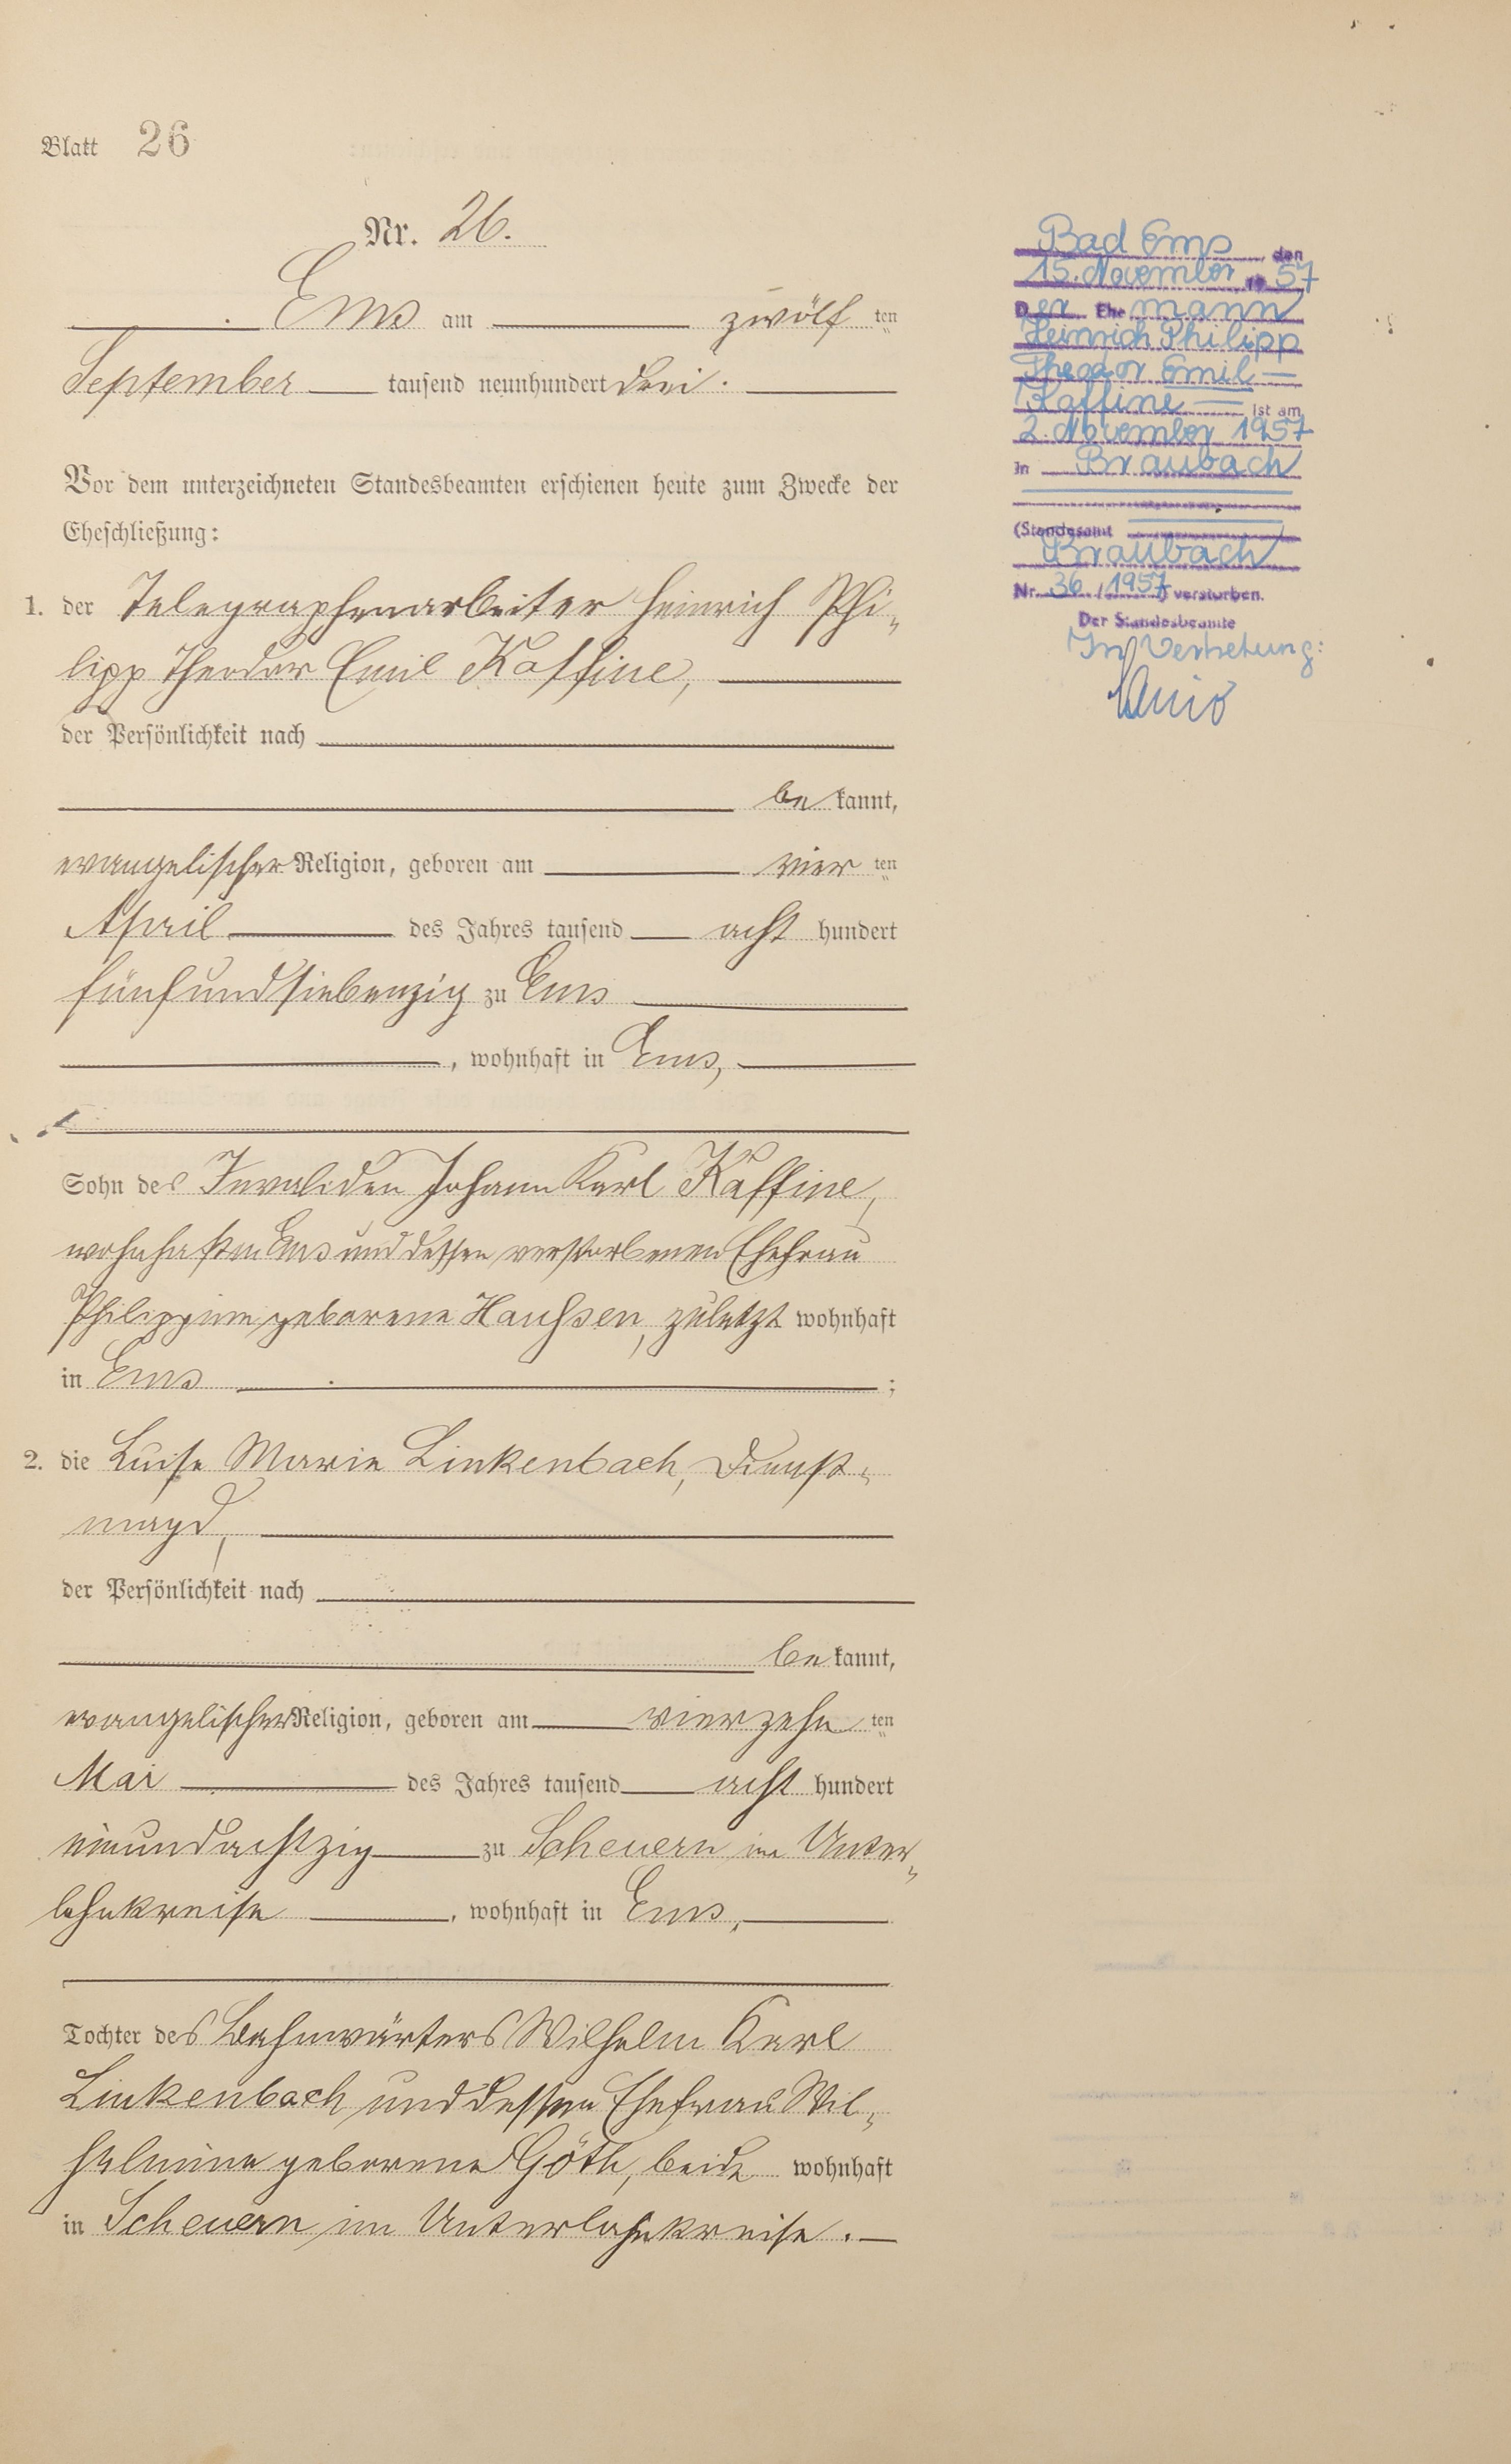 Blatt 26
Nr. 26.
Ems am zwölf ten
September tausend neunhundert drei.
Vor dem unterzeichneten Standesbeamten erschienen heute zum Zwecke der
Eheschließung:
1. der Telegraphenarbeiter Heinrich Phi-
lipp Theodor Emil Kaffine,
der Persönlichkeit nach
be kannt,
evangelischer Religion, geboren am vier ten
April des Jahres tausend acht hundert
fünfundsiebenzig zu Ems
, wohnhaft in Ems,
Sohn des Invaliden Johann Karl Kaffine,
wohnhaft in Ems und dessen verstorbenen Ehefrau
Philippine geborene Haußsen, zuletzt wohnhaft
in Ems ;
2. die Luise Marie Linkenbach, Dienst-
magd,
der Persönlichkeit nach
be kannt,
evangelischer Religion, geboren am vierzehn ten
Mai des Jahres tausend acht hundert
einundachtzig zu Scheuern im Unter-
lahnkreise, wohnhaft in Ems,
Tochter des Bahnwärters Wilhelm Karl
Linkenbach und dessen Ehefrau Wil-
helmine geborene Göth, beide wohnhaft
in Scheuern im Unterlahnkreise.
Bad Ems, den
15. November 1957
Der Ehemann
Heinrich Philipp
Theodor Emil
Kaffine ist am
2. November 1957
in Braubach
(Standesamt
Braubach
Nr. 36 / 1957) verstorben.
Der Standesbeamte
In Vertretung: